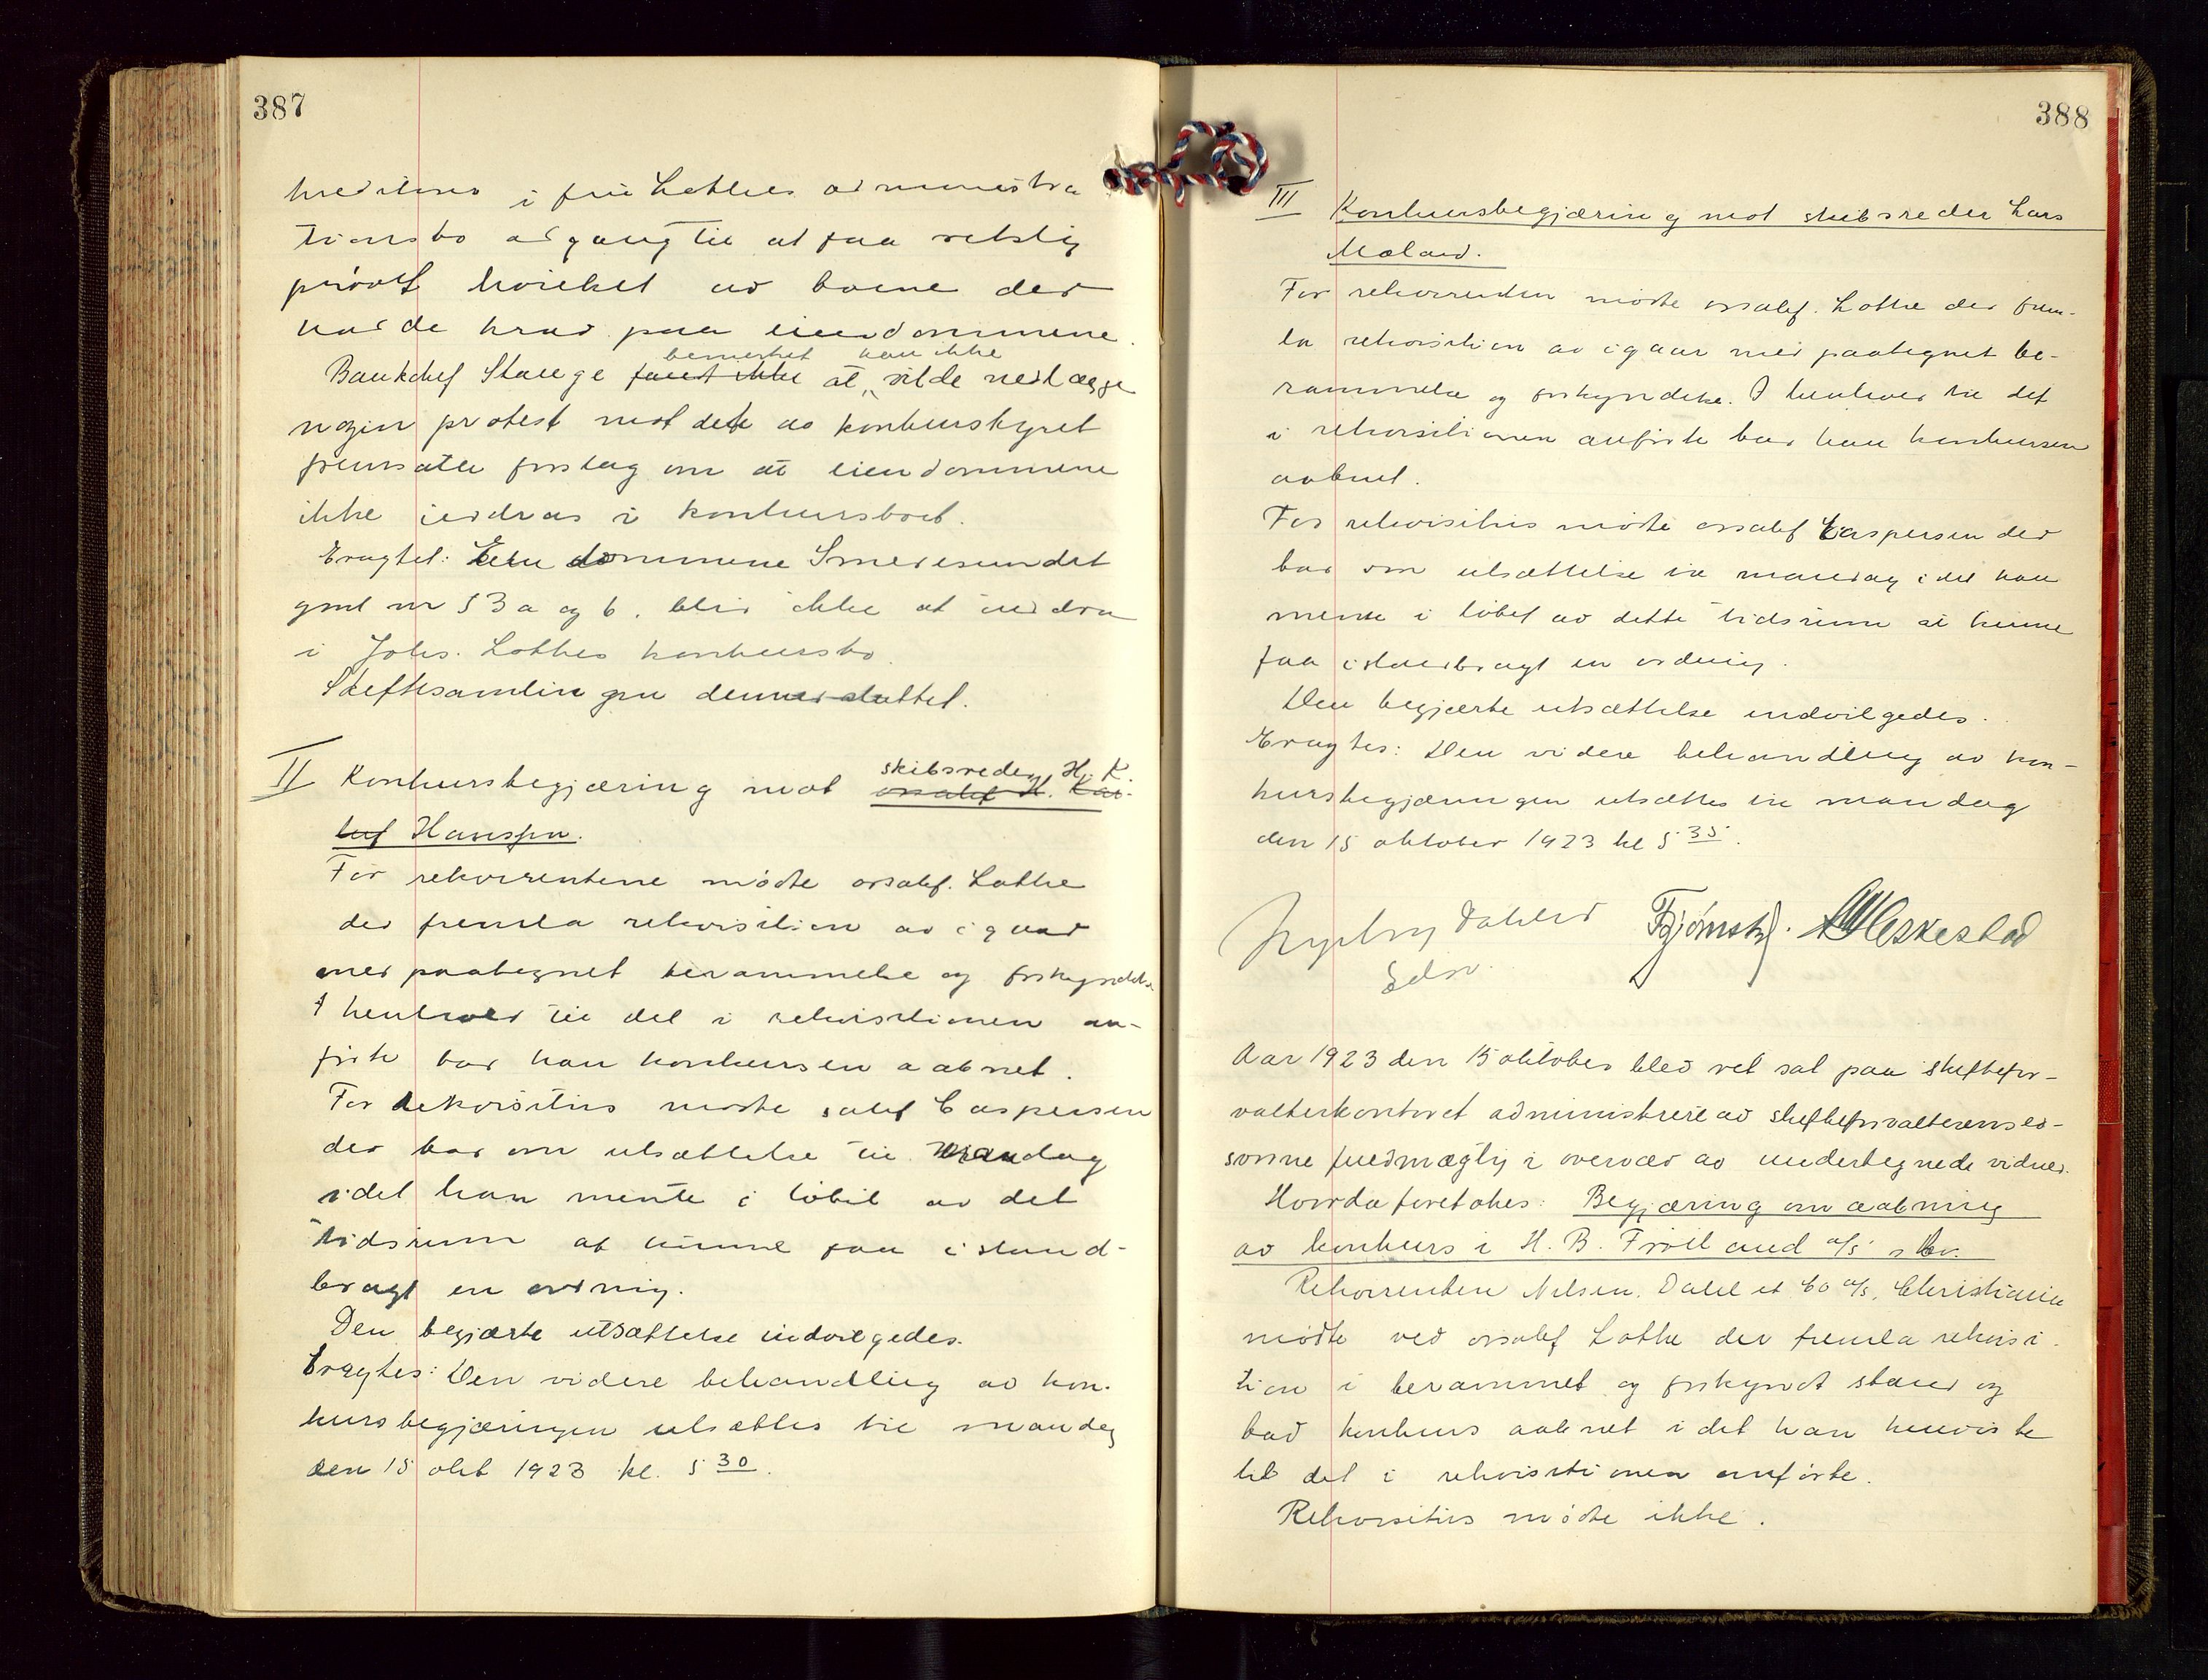 387
kreditorer i fru Lothes administra
tionsbo adgang til at faa retslig
prøvet hvilket av boene der
havde krav paa eiendommene.
Bankchef Stange fandt ikke bemerket at han ikke vilde nedlægge
nogen protest mot dette av konkursstyret
fremsatte forslag om at eiendommene
ikke inddras i konkursboet.
Eragtet: Eiendommene Smedesundet
gnr nr 53 a og b. blir ikke at inddra
i Johs. Lothes konkursbo.
Skiftesamlingen dermed sluttet.
II Konkursbegjæring mot skibsreder H. K.
Hanssen.
For rekvirentene møtte orsakf. Lothe
der fremla rekvisition av igaar
med paategnet berammelse og forkyndelse
I henhold til det i rekvisitionen an-
førte bad han konkursen aabnet.
For rekvisitus møtte sakf Caspersen
der bad om utsættelse til mandag
idet han mente i løbet av det
tidsrum at kunne faa istand-
bragt en ordning.
Den begjærte utsættelse indvilgedes.
Eragtes: Den videre behandling av kon-
kursbegjæringen utsættes til mandag
den 15 okt 1923 kl. 5 30.
388
III Konkursbegjæring mot skibsreder Lars
Mæland.
For rekvirenten møtte orsakf. Lothe der frem-
la rekvisition av igaar med paategnet be-
rammelse og forkyndelse. I henhold til det
i rekvisitionen anførte bad han konkursen
aabnet.
For rekvisitus møtte orsakf Caspersen der
bad om utsættelse til mandag idet han
mente i løbet av dette tidsrum at kunne
faa istandbragt en ordning.
Den begjærte utsættelse indvilgedes.
Eragtes: Den videre behandling av kon-
kursbegjæringen utsættes til mandag
den 15 oktober 1923 kl 5 35.
Dahler
Aar 1923 den 15 oktober blev ret sat paa skiftefor-
valterkontoret administrert av skifteforvalterens ed-
svorne fuldmægtig i overvær av undertegnede vidner.
Hvorda foretokes: Begjæring om aabning
av konkurs i H. B. Frøiland a/s skbv.
Rekvirenten Nilsen, Dahl et Co a/s, Christiania
møtte ved orsakf Lothe der fremla rekvisi-
tion i berammet og forkyndt stand og
bad konkurs aabnet idet han henviste
til det i rekvisitionen anførte.
Rekvisitus møtte ikke.